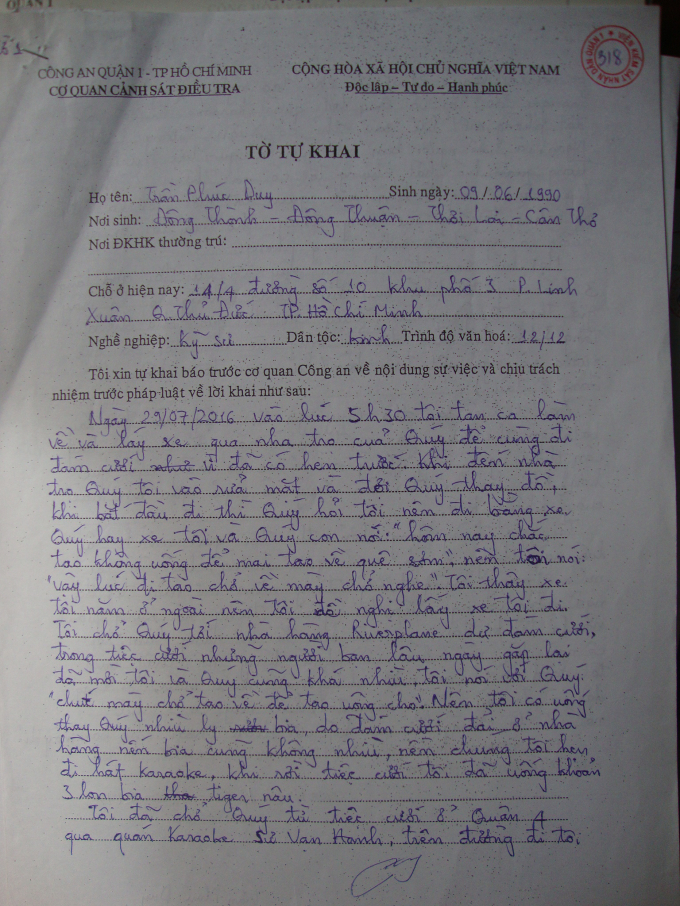 QUẬN 1
318
VIỆN KIỂM SÁT NHÂN DÂN QUẬN 1
CÔNG AN QUẬN 1 - TP HỒ CHÍ MINH
CƠ QUAN CẢNH SÁT ĐIỀU TRA
CỘNG HÒA XÃ HỘI CHỦ NGHĨA VIỆT NAM
Độc lập – Tự do – Hạnh phúc
TỜ TỰ KHAI
Họ tên: Trần Phúc Duy Sinh ngày: 09/06/1990
Nơi sinh: Đông Thành – Đông Thuận – Thới Lai – Cần Thơ
Nơi ĐKHK thường trú:
Chỗ ở hiện nay: 14/4 đường số 10 khu phố 3 P. Linh
Xuân Q. Thủ Đức TP. Hồ Chí Minh
Nghề nghiệp: Kỹ sư Dân tộc: kinh Trình độ văn hoá: 12/12
Tôi xin tự khai báo trước cơ quan Công an về nội dung sự việc và chịu trách
nhiệm trước pháp luật về lời khai như sau:
Ngày 29/07/2016 vào lúc 5h30 tôi tan ca làm
về và lấy xe qua nhà trọ của Quý để cùng đi
đám cưới vì đã có hẹn trước. Khi đến nhà
trọ Quý tôi vào rửa mặt và đợi Quý thay đồ,
khi bắt đầu đi thì Quý hỏi tôi nên đi bằng xe
Quý hay xe tôi và Quý còn nói: "hôm nay chắc
tao không uống để mai tao về quê sớm", nên tôi nói:
"vậy lúc đi tao chở về mày chở nghe". Tôi thấy xe
tôi nằm ở ngoài nên tôi đề nghị lấy xe tôi đi.
Tôi chở Quý tới nhà hàng Riverplane dự đám cưới,
trong tiệc cưới những người bạn lâu ngày gặp lại
đã mời tôi và Quý cũng khá nhiều, tôi nói với Quý
"chút mày chở tao về để tao uống cho". Nên tôi có uống
thay Quý nhiều ly bia, do đám cưới đãi ở nhà
hàng nên bia cũng không nhiều, nên chúng tôi hẹn
đi hát karaoke, khi rời tiệc cưới tôi đã uống khoản
3 lon bia tiger nâu.
Tôi đã chở Quý từ tiệc cưới ở Quận 4
qua quán Karaoke Sư Vạn Hạnh, trên đường đi tôi